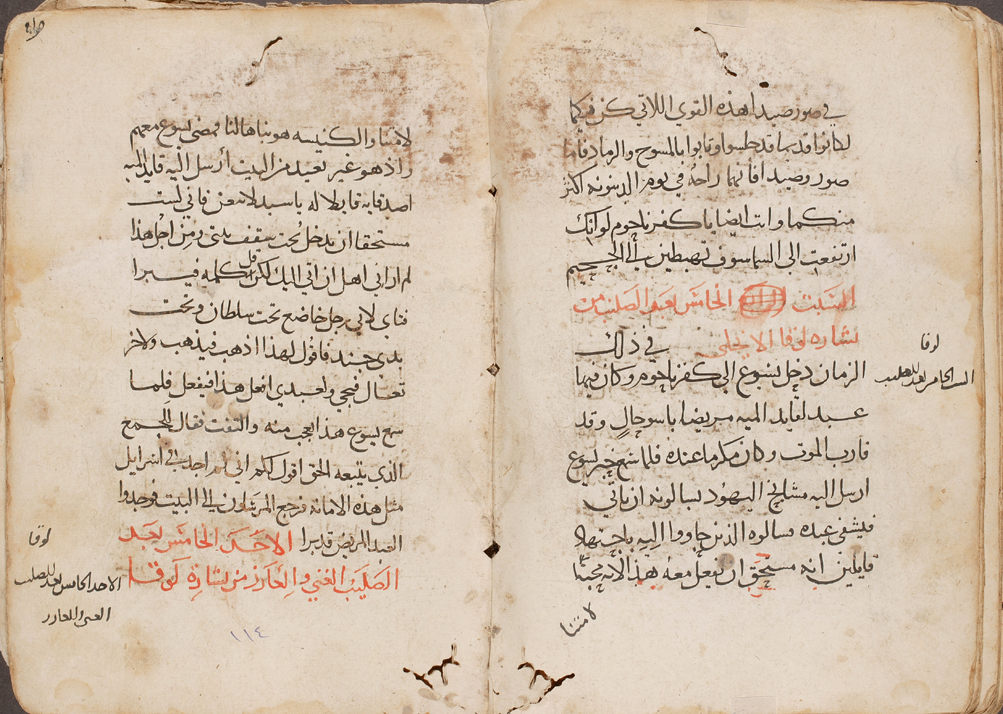 في صور وصيدا هذه القوي اللاتي كن فيكما
لكانوا قديما قد جلسوا وتابوا بالمسوح والرماد فاما
صور وصيدا فانهما راحة في يوم الدينونه اكثر
منكما وانت ايضا يا كفرناحوم لو انك
ارتفعت الى السما سوف تهبطين الى الجحيم
السبت الخامس بعد الصليب من
بشاره لوقا الانجيلي في ذلك
الزمان دخل يسوع الي كفرناحوم وكان فيها
عبد لقايد الميه مريضا باسو حال وقد
قارب الموت وكان مكرما عنده فلما سمع خبر يسوع
ارسل اليه مشايخ اليهود يسالونه ان ياتي
فيشفى عبده فسالوه الذين جاووا اليه باجتهاد
قايلين انه مستحق ان تفعل معه هذا لانه محبا
لامتنا
لوقا
السبت الخامس بعد الصليب
لامتنا والكنيسه هو بناها لنا فمضى يسوع معهم
واذ هو غير بعيد من البيت ارسل اليه قايد الميه
اصدقايه قايلا له يا سيد لا تتعن فاني لست
مستحقا ان تدخل تحت سقف بيتي ومن اجل هذا
لم اراني اهل ان اتي اليك لكن قول كلمه فيبرا
فتاي لاني رجل خاضع تحت سلطان وتحت
يدي جند فاقول لهذا اذهب فيذهب ولاخر
تعال فيجي ولعبدي افعل هذا فيفعل فلما
سمع يسوع هذا عجب منه والتفت فقال للجمع
الذي يتبعه الحق اقول لكم اني لم اجد في اسرايل
مثل هذه الامانه فرجع المرسلون الى البيت فوجدوا
العبد المريض قد برا الاحد الخامس بعد
الصليب الغني والعازر من بشارة لوقا
لوقا
الاحد الخامس بعد الصليب
الغني والعازر
١١٤